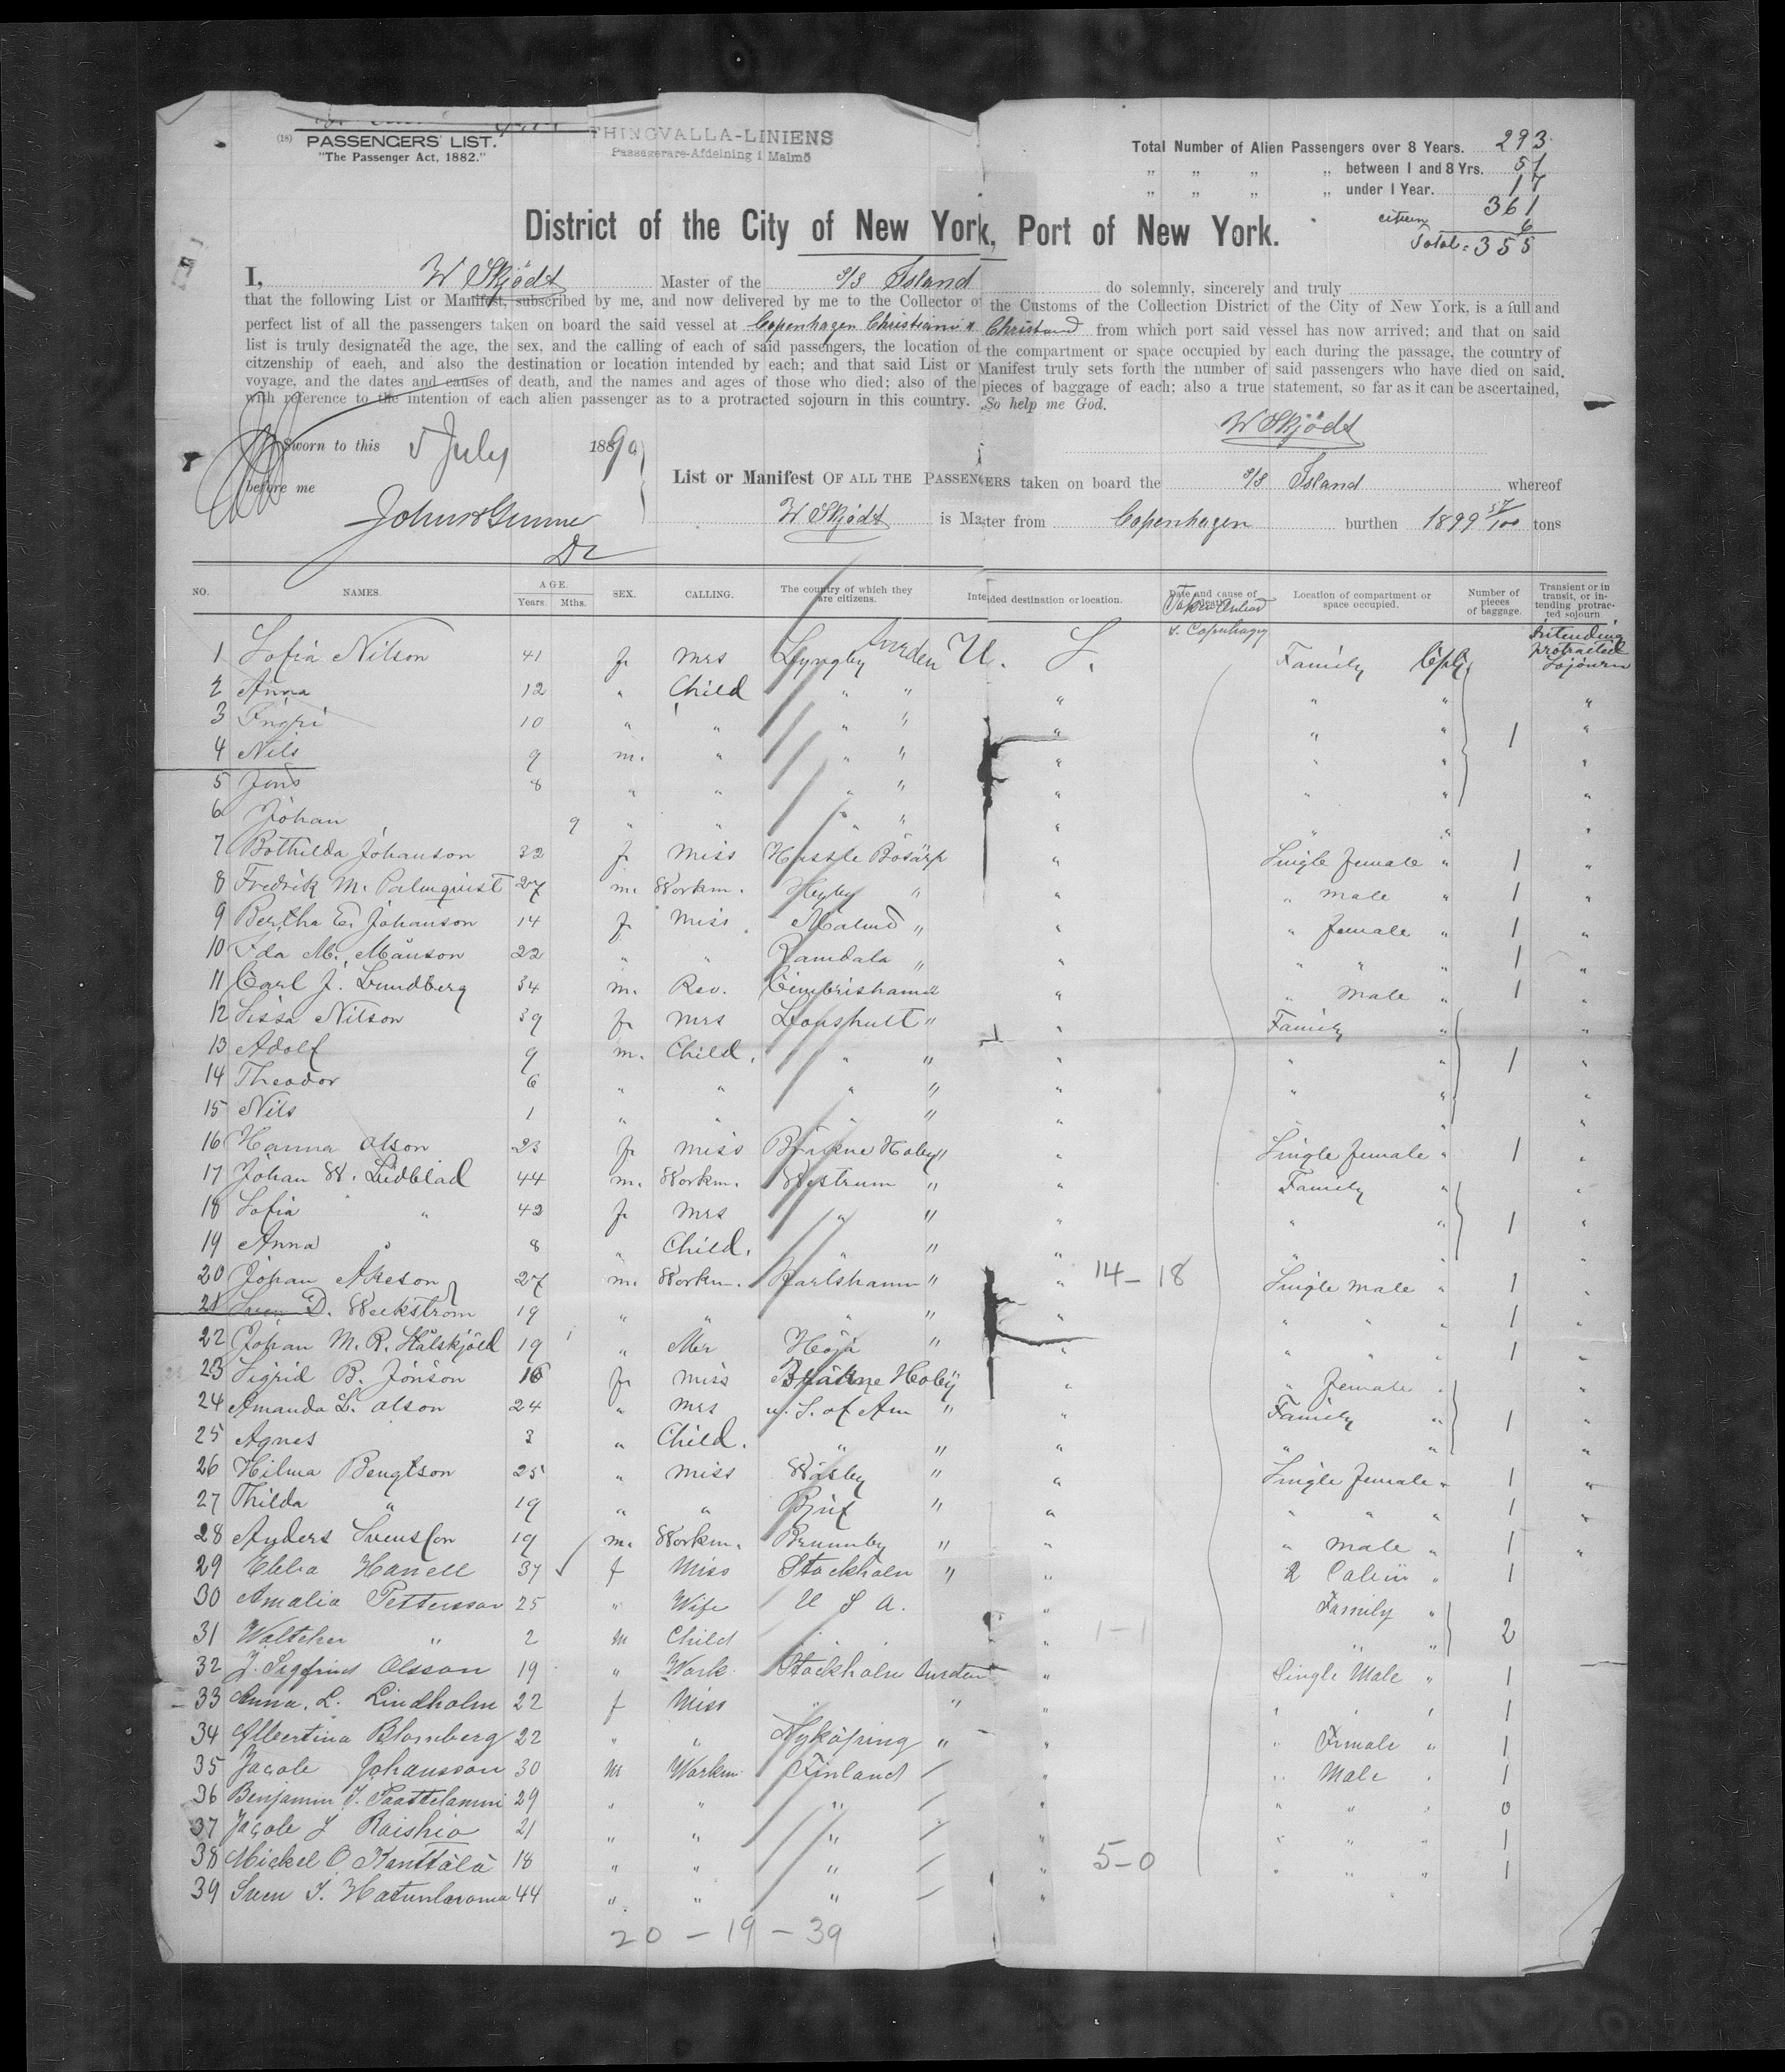 (18) PASSENGERS' LIST.
"The Passenger Act, 1882."
THINGVALLA-LINIENS
Passagerare-Afdelning i Malmö
Total Number of Alien Passengers over 8 Years. 293
„ „ „ „ between 1 and 8 Yrs. 51
„ „ „ „ under 1 Year. 17
361
citizen 6
Total: 355
District of the City of New York, Port of New York.
I, W Skjödt Master of the S/S Island do solemnly, sincerely and truly
that the following List or Manifest, subscribed by me, and now delivered by me to the Collector of the Customs of the Collection District of the City of New York, is a full and
perfect list of all the passengers taken on board the said vessel at Copenhagen Christiania Christsand from which port said vessel has now arrived; and that on said
list is truly designated the age, the sex, and the calling of each of said passengers, the location of the compartment or space occupied by each during the passage, the country of
citzenship of eaeh, and also the destination or location intended by each; and that said List or Manifest truly sets forth the number of said passengers who have died on said.
voyage, and the dates and causes of death, and the names and ages of those who died; also of the pieces of baggage of each; also a true statement, so far as it can be ascertained,
with reference to the intention of each alien passenger as to a protracted sojourn in this country. So help me God.
W Skjödt
Sworn to this 5 July 1890
before me
List or Manifest OF ALL THE PASSENGERS taken on board the S/S Island whereof
W Skjödt is Master from Copenhagen burthen 1899 57/100 tons
NO. NAMES. AGE. Years. Mths. SEX. CALLING. The country of which they are citizens. Intended destination or location. Date and cause of death. Location of compartment or space occupied. Number of pieces of baggage. Transient or in transit, or intending protracted sojourn
1 Sofia Nilson 41 f. Mrs Lyngby Sweden U. S. Family Cpl. Intending protracted Sojourn
2 Anna 12 " Child " " " " " "
3 Ingri 10 " " " " " " " 1 "
4 Nils 9 m. " " " " " " "
5 Jöns 8 " " " " " " " "
6 Johan 9 " " " " " " " "
7 Bothilda Johanson 32 f. Miss Hassle Bösarp " Single female " 1 "
8 Fredrik M. Palmquist 27 m. Workm. Hyby " " " male " 1 "
9 Bertha E. Johanson 14 f Miss Malmö " " " female " 1 "
10 Ida M. Månson 22 " " Ramdala " " " " " 1 "
11 Carl J. Lundberg 34 m. Rev. Cimbrishamn " " male " 1 "
12 Sissa Nilson 39 f. Mrs Lönshult " " Family " "
13 Adolf 9 m. Child. " " " " " 1 "
14 Theodor 6 " " " " " " " "
15 Nils 1 " " " " " " "
16 Hanna Olson 23 f. Miss Bräkne Hoby " " Single female " 1 "
17 Johan W. Lidblad 44 m. Workm. Westrum " " Family " "
18 Sofia " 42 f. Mrs " " " " " 1 "
19 Anna " 8 " Child. " " " " " "
20 Johan Åkeson 27 m. Workm. Karlshamn " " 14-18 Single male " 1 "
21 Sven D. Weckström 19 " " " " " " " " 1 "
22 Johan M. R. Stålskjöld 19 " Mr Höja " " " " " 1 "
23 Sigrid B. Jönson 16 f. Miss Bräkne Hoby " " female " "
24 Amanda L. Olson 24 " Mrs U. S. of Am " " Family " 1 "
25 Agnes 3 " Child. " " " " " "
26 Hilma Bengtson 25 " Miss Wäsby " " Single female " 1 "
27 Thilda " 19 " " Bjuf " " " " " 1 "
28 Anders Svensson 19 m. Workm. Brunnby " " " male " 1 "
29 Ebba Hanell 37 f Miss Stockholm " " 2 Cabin " 1
30 Amalia Pettersson 25 " Wife U S A. " Family "
31 " 2 m Child " 1-1 " " 2
32 J. Sigfrid Olsson 19 " Work Stockholm Sweden " Single Male " 1
33 Anna. L. Lindholm 22 f Miss " " " " " " 1
34 Albertina Blomberg 22 " " Nyköping " " " Female " 1
35 Jacob Johansson 30 m Workm Finland " " Male " 1
36 Benjamin 29 " " " " " " " 0
37 Jacob J Raishio 21 " " " " " " " 1
38 Mickel O 18 " " " " 5-0 " " " 1
39 44 " " " "
20 - 19 - 39